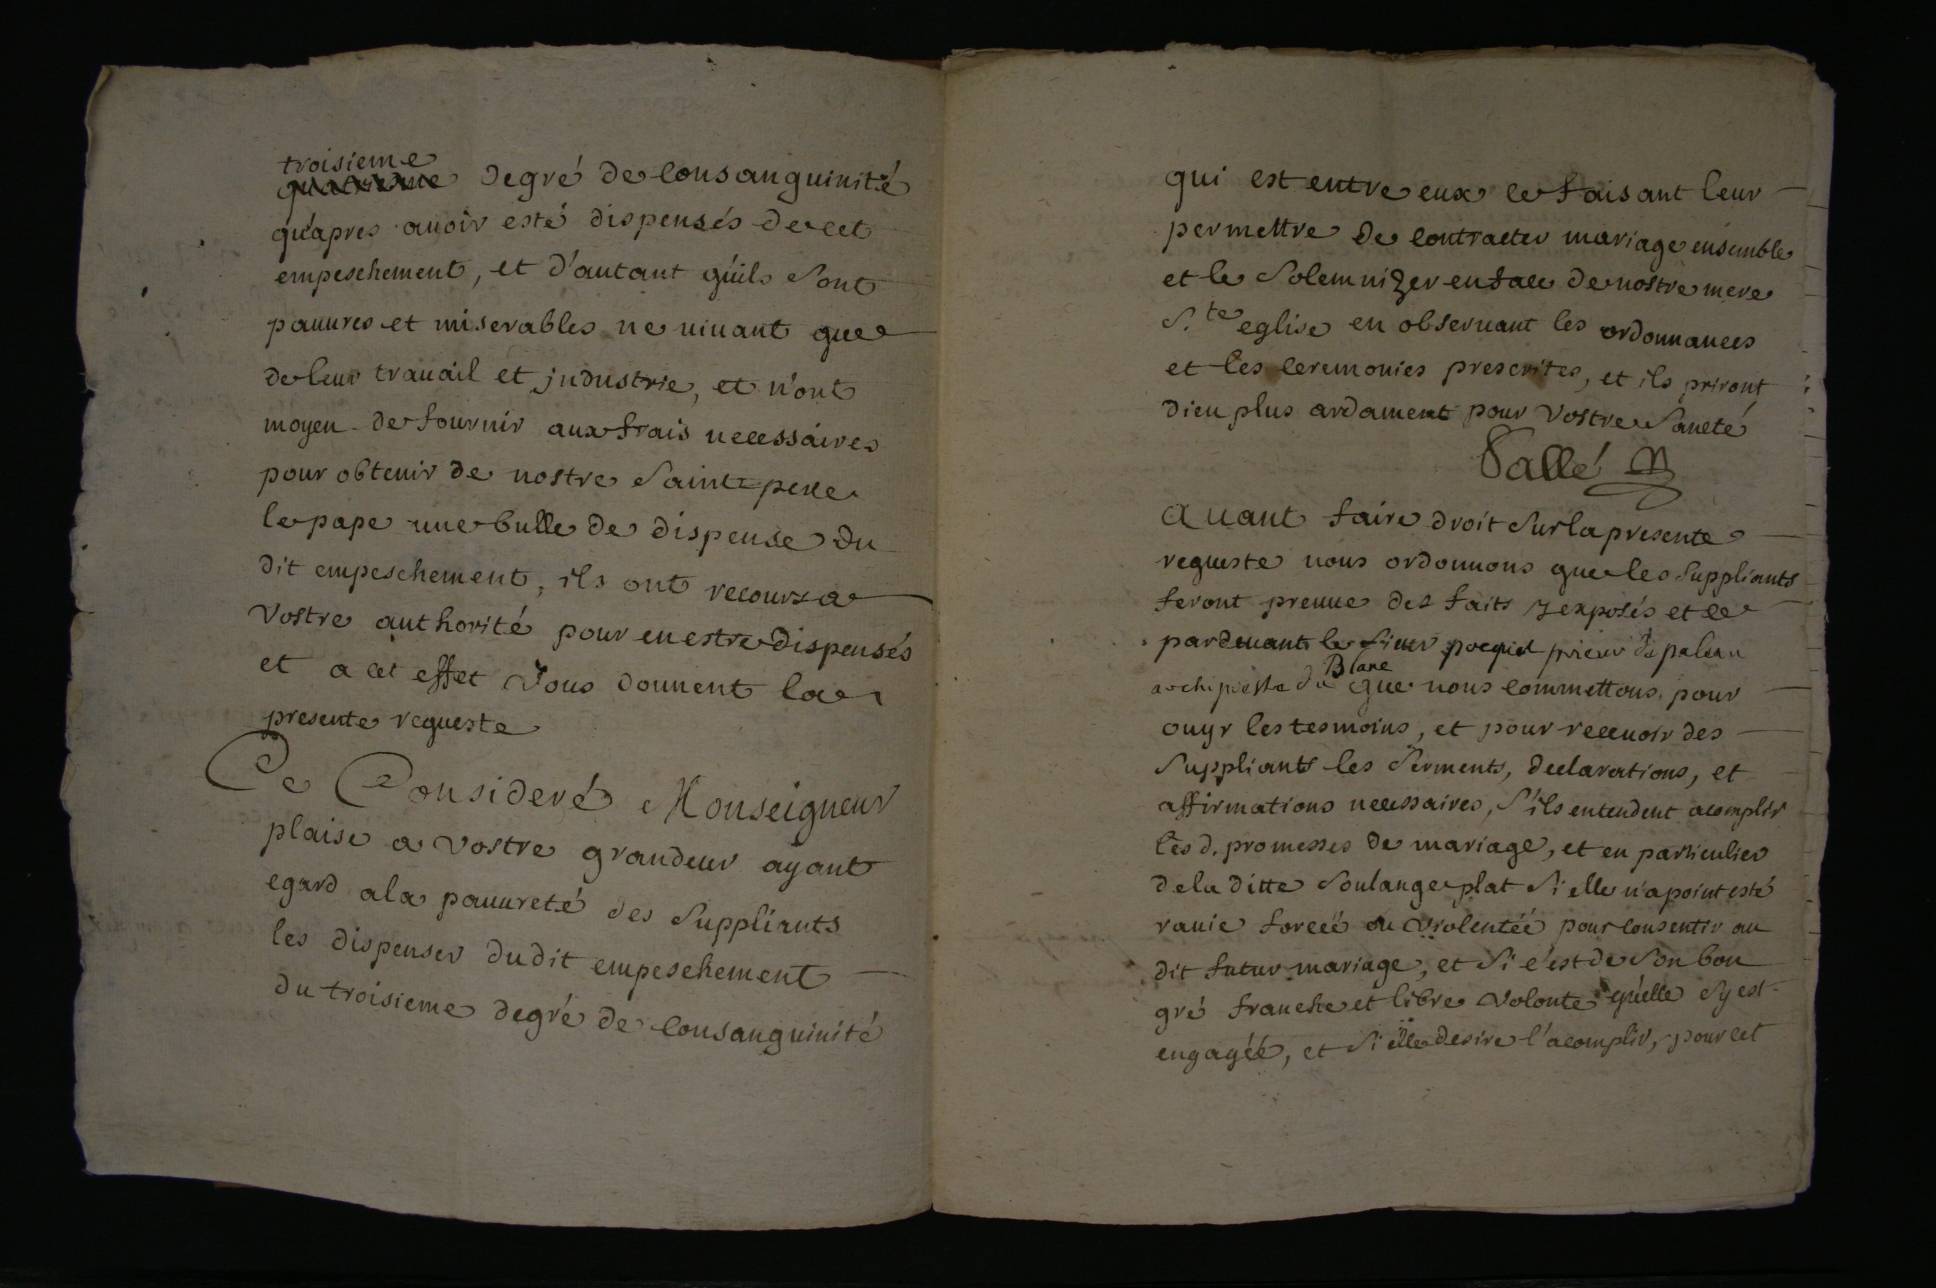 troisieme
quatrieme degré de consanguinité
qu'apres auoir esté dispensés de cet
empeschement, et d'autant qu'ils sont
pauures et miserables ne uiuant que
de leur trauail et jndustrie, et n'ont
moyen de fournir aux frais necessaires
pour obtenir de nostre Saint pere
le pape une bulle de dispense du
dit empeschement, ils ont recours a
vostre authorité pour en estre dispensés
et a cet effet vous donnent la
presente requeste
Ce Consideré Monseigneur
plaise a vostre grandeur ayant
egard a la pauureté des Suppliants
les dispenser dudit empeschement
du troisieme degré de consanguinité
qui est entre eux ce faisant leur
permettre de contracter mariage ensemble
et le Solemnizer en face de nostre mere
S.te eglise en obseruant les ordonnances
et les ceremonies prescrites, et ils priront
dieu plus ardament pour vostre Santé
Sallé
Auant faire droit Sur la presente
requeste nous ordonnons que les Suppliants
feront preuue des faits y exposés et ce
pardeuant le Sieur prieur de paleau
archiprestre du Blanc que nous commettons pour
ouyr les tesmoins, et pour receuoir des
Suppliants les Serments, declarations, et
affirmations necessaires, S'ils entendent acomplir
les d. promesses de mariage, et en particulier
de la ditte Soulange plat Si elle n'a point esté
rauie forcéé ou violentéé pour consentir au
dit futur mariage, et Si c'est de Son bon
gré franche et libre volonté qu'elle s'y est
engagéé, et Si elle desire l'acomplir, pour cet